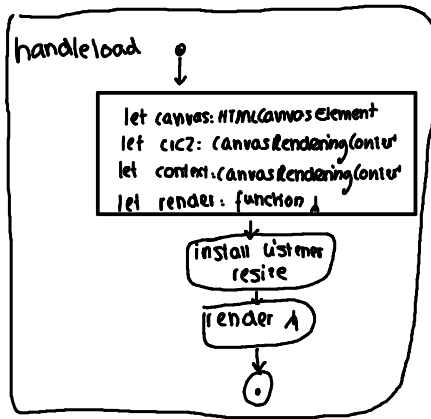 handleload
let canvas: HTMLCanvasElement
let crc2: CanvasRenderingContext
let context: CanvasRenderingContext
let render: function
install Listener
resize
render